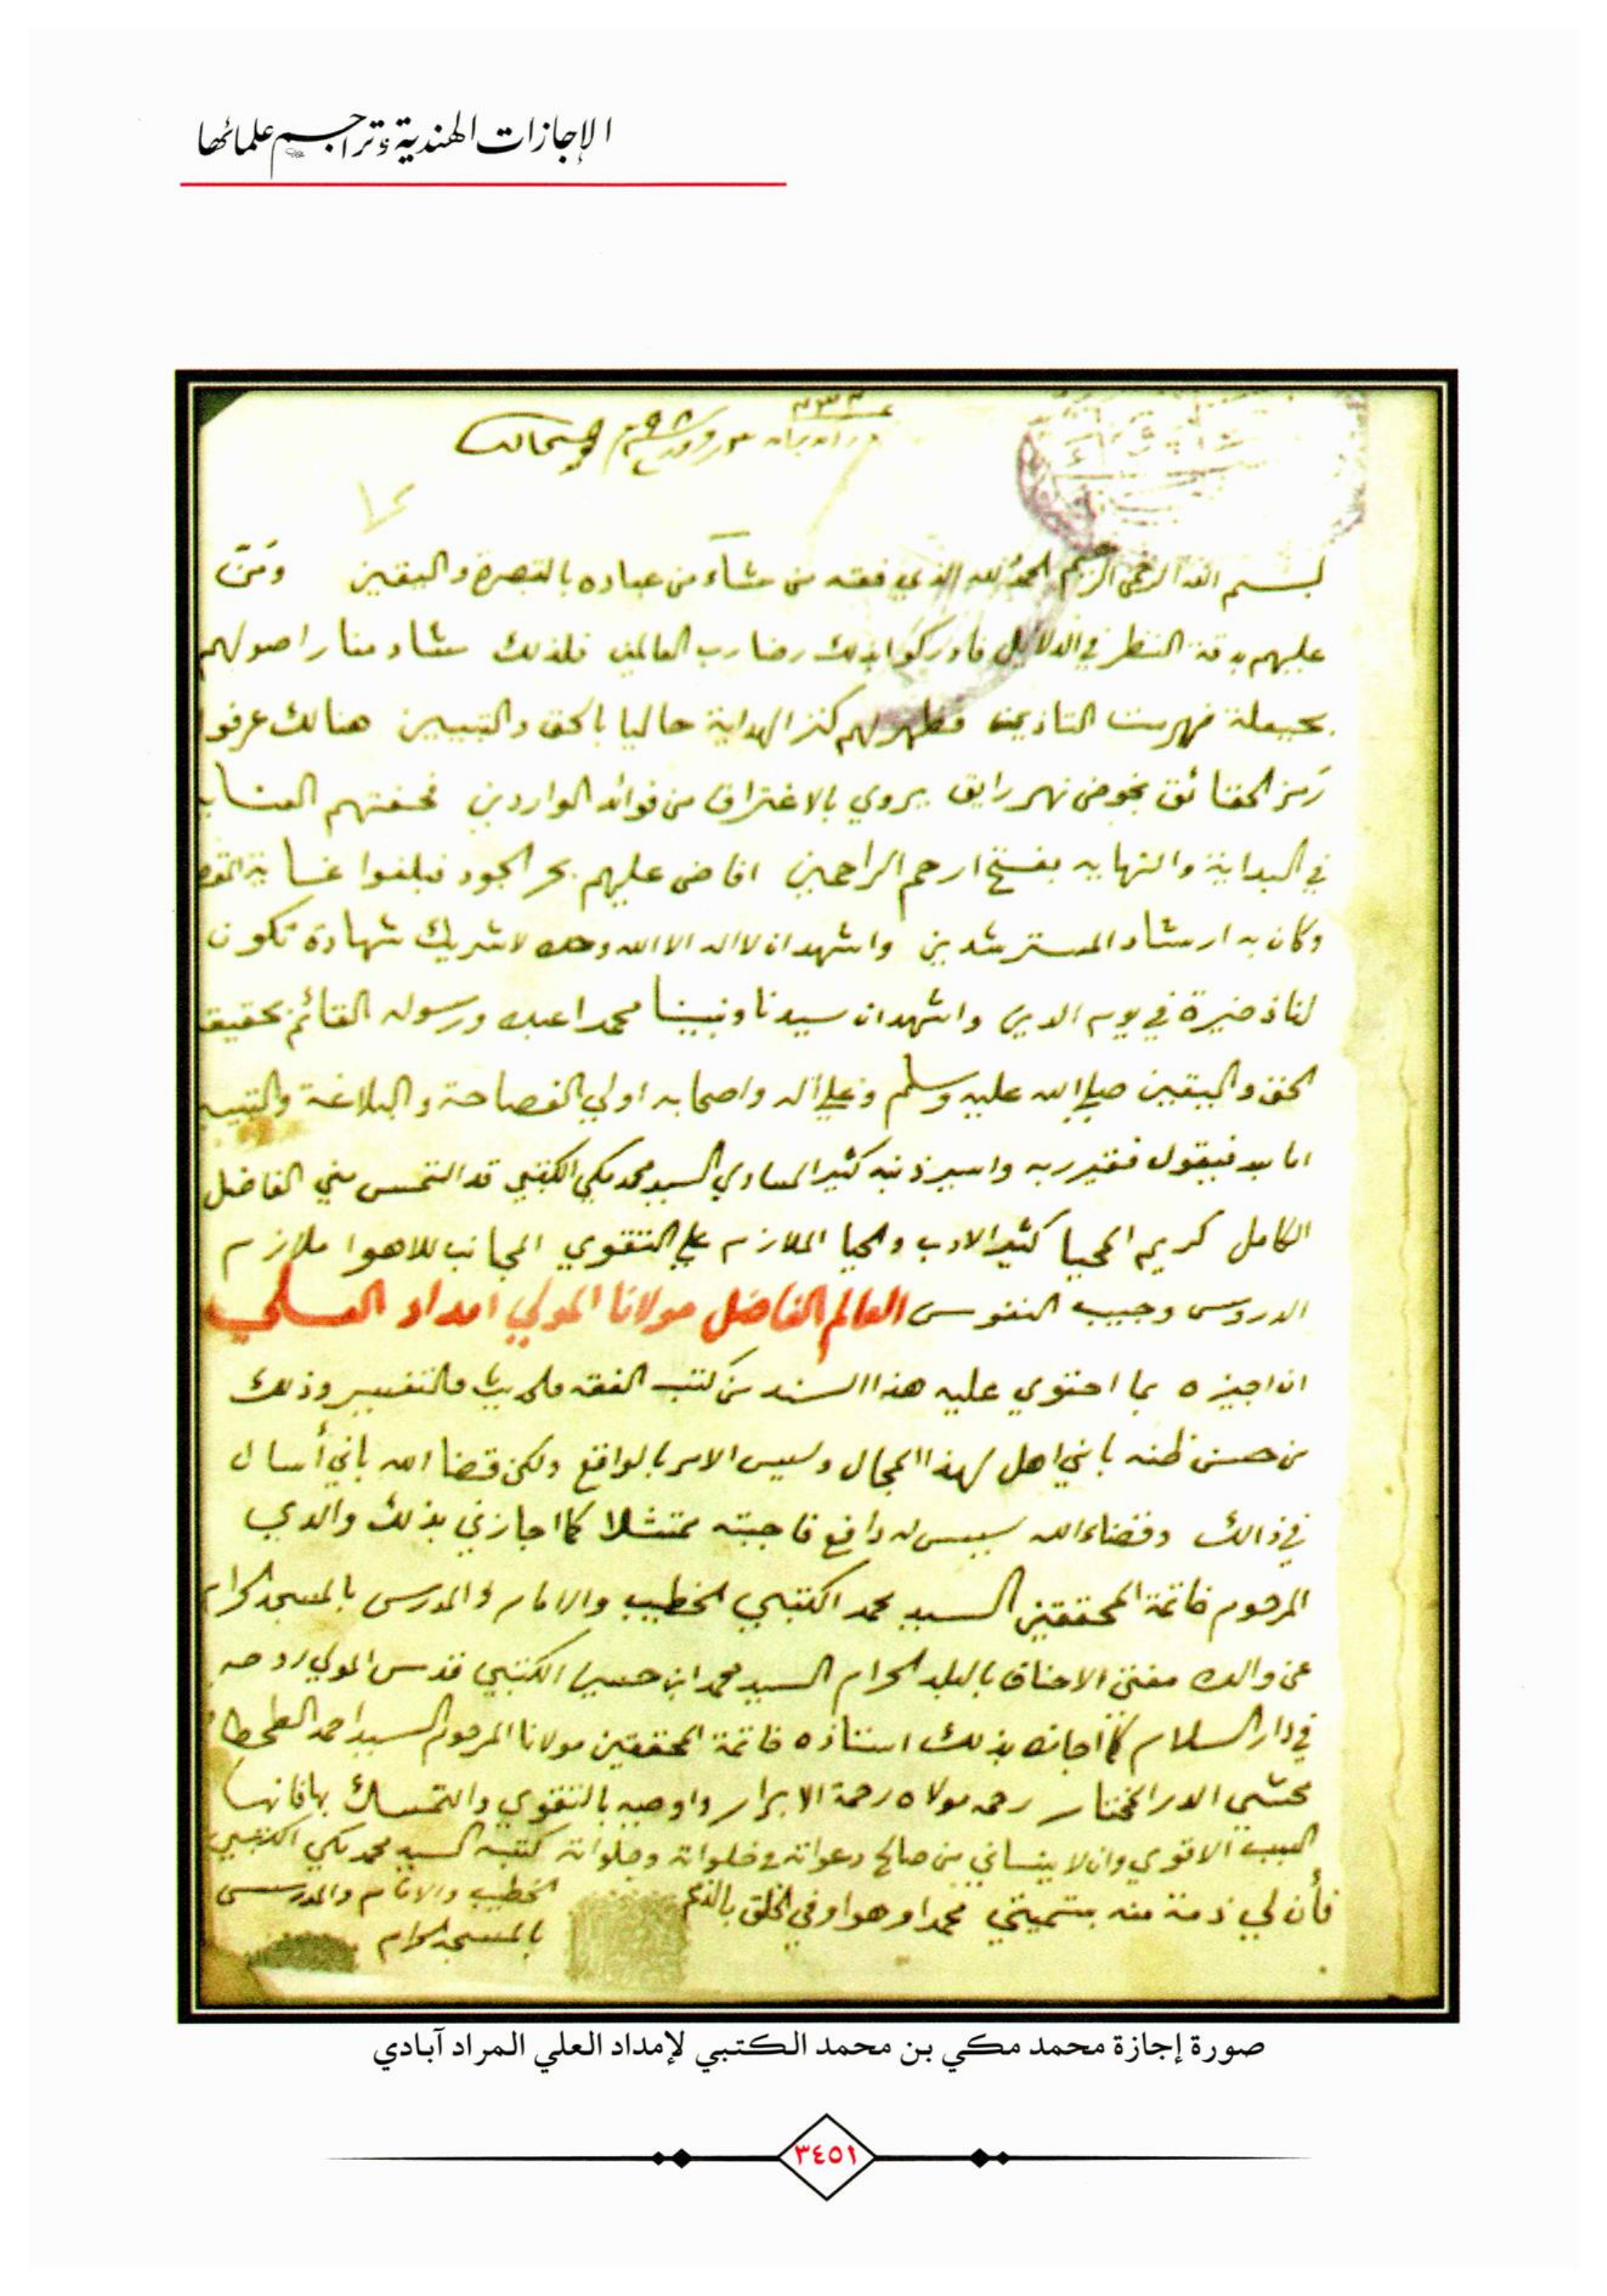 الإجازات الهندية وتراجم علمائها
بسم الله الرحمن الرحيم الحمد لله الذي فقه من شآء من عباده بالتبصرة واليقين ومَنّ
عليهم بدقة النظر في الدلايل فادركوا بذلك رضا رب العالمين فلذلك شاد منار اصولهم
فظهر لهم كنز الهداية حاليا بالحق والتبيين هنالك عرفوا
رمز الحقائق بخوض نهر رايق يروي بالاغتراف من فوائد الواردين فحفتهم العناية
في البداية والنهايه بفتح ارحم الراحمين افاض عليهم بحر الجود فبلغوا غاية
وكان به ارشاد المسترشدين واشهد ان لا اله الا الله وحده لا شريك شهادة تكون
لنا ذخيرة في يوم الدين واشهد ان سيدنا ونبينا محمدا عبده ورسوله القائم بحقيقة
الحق واليقين صلى الله عليه وسلم وعلى آله واصحابه اولي الفصاحة والبلاغة والتبيين
اما بعد فيقول فقير ربه واسير ذنبه كثير المساوي السيد محمد مكي الكتبي قد التمس مني الفاضل
الكامل كريم المحيا كثير الادب والحيا الملازم على التقوي المجانب للاهوا ملازم
الدروس وحبيب النفوس العالم الفاضل مولانا المولي امداد العلي
ان اجيزه بما احتوي عليه هذا السند من كتب الفقه والحديث والتفسير وذلك
من حسن ظنه باني اهل لهذا المجال وليس الامر بالواقع ولكن قضا الله باني أسال
في ذالك وقضاء الله ليس له دافع فاجبته ممتثلا كما اجازني بذلك والدي
المرحوم خاتمة المحققين السيد محمد الكتبي الخطيب والامام والمدرس بالمسجد الحرام
عن والده مفتي الاحناف بالبلد الحرام السيد محمد ابن حسين الكتبي قدس المولي روحه
في دار السلام كما اجازه بذلك استاذه خاتمة المحققين مولانا المرحوم السيد احمد الطحطاوي
محشي الدر المختار رحمه مولاه رحمة الابرار واوصيه بالتقوي والتمسك بها فانها
السبب الاقوي وان لا ينساني من صالح دعواته في خلواته وجلواته كتبه السيد محمد مكي الكتبي
الخطيب والامام والمدرس
بالمسجد الحرام
فأن لي ذمة منه بتسميتي محمدا وهو اوفي الخلق بالذمم
صورة إجازة محمد مكي بن محمد الكتبي لإمداد العلي المراد آبادي
٣٤٥١